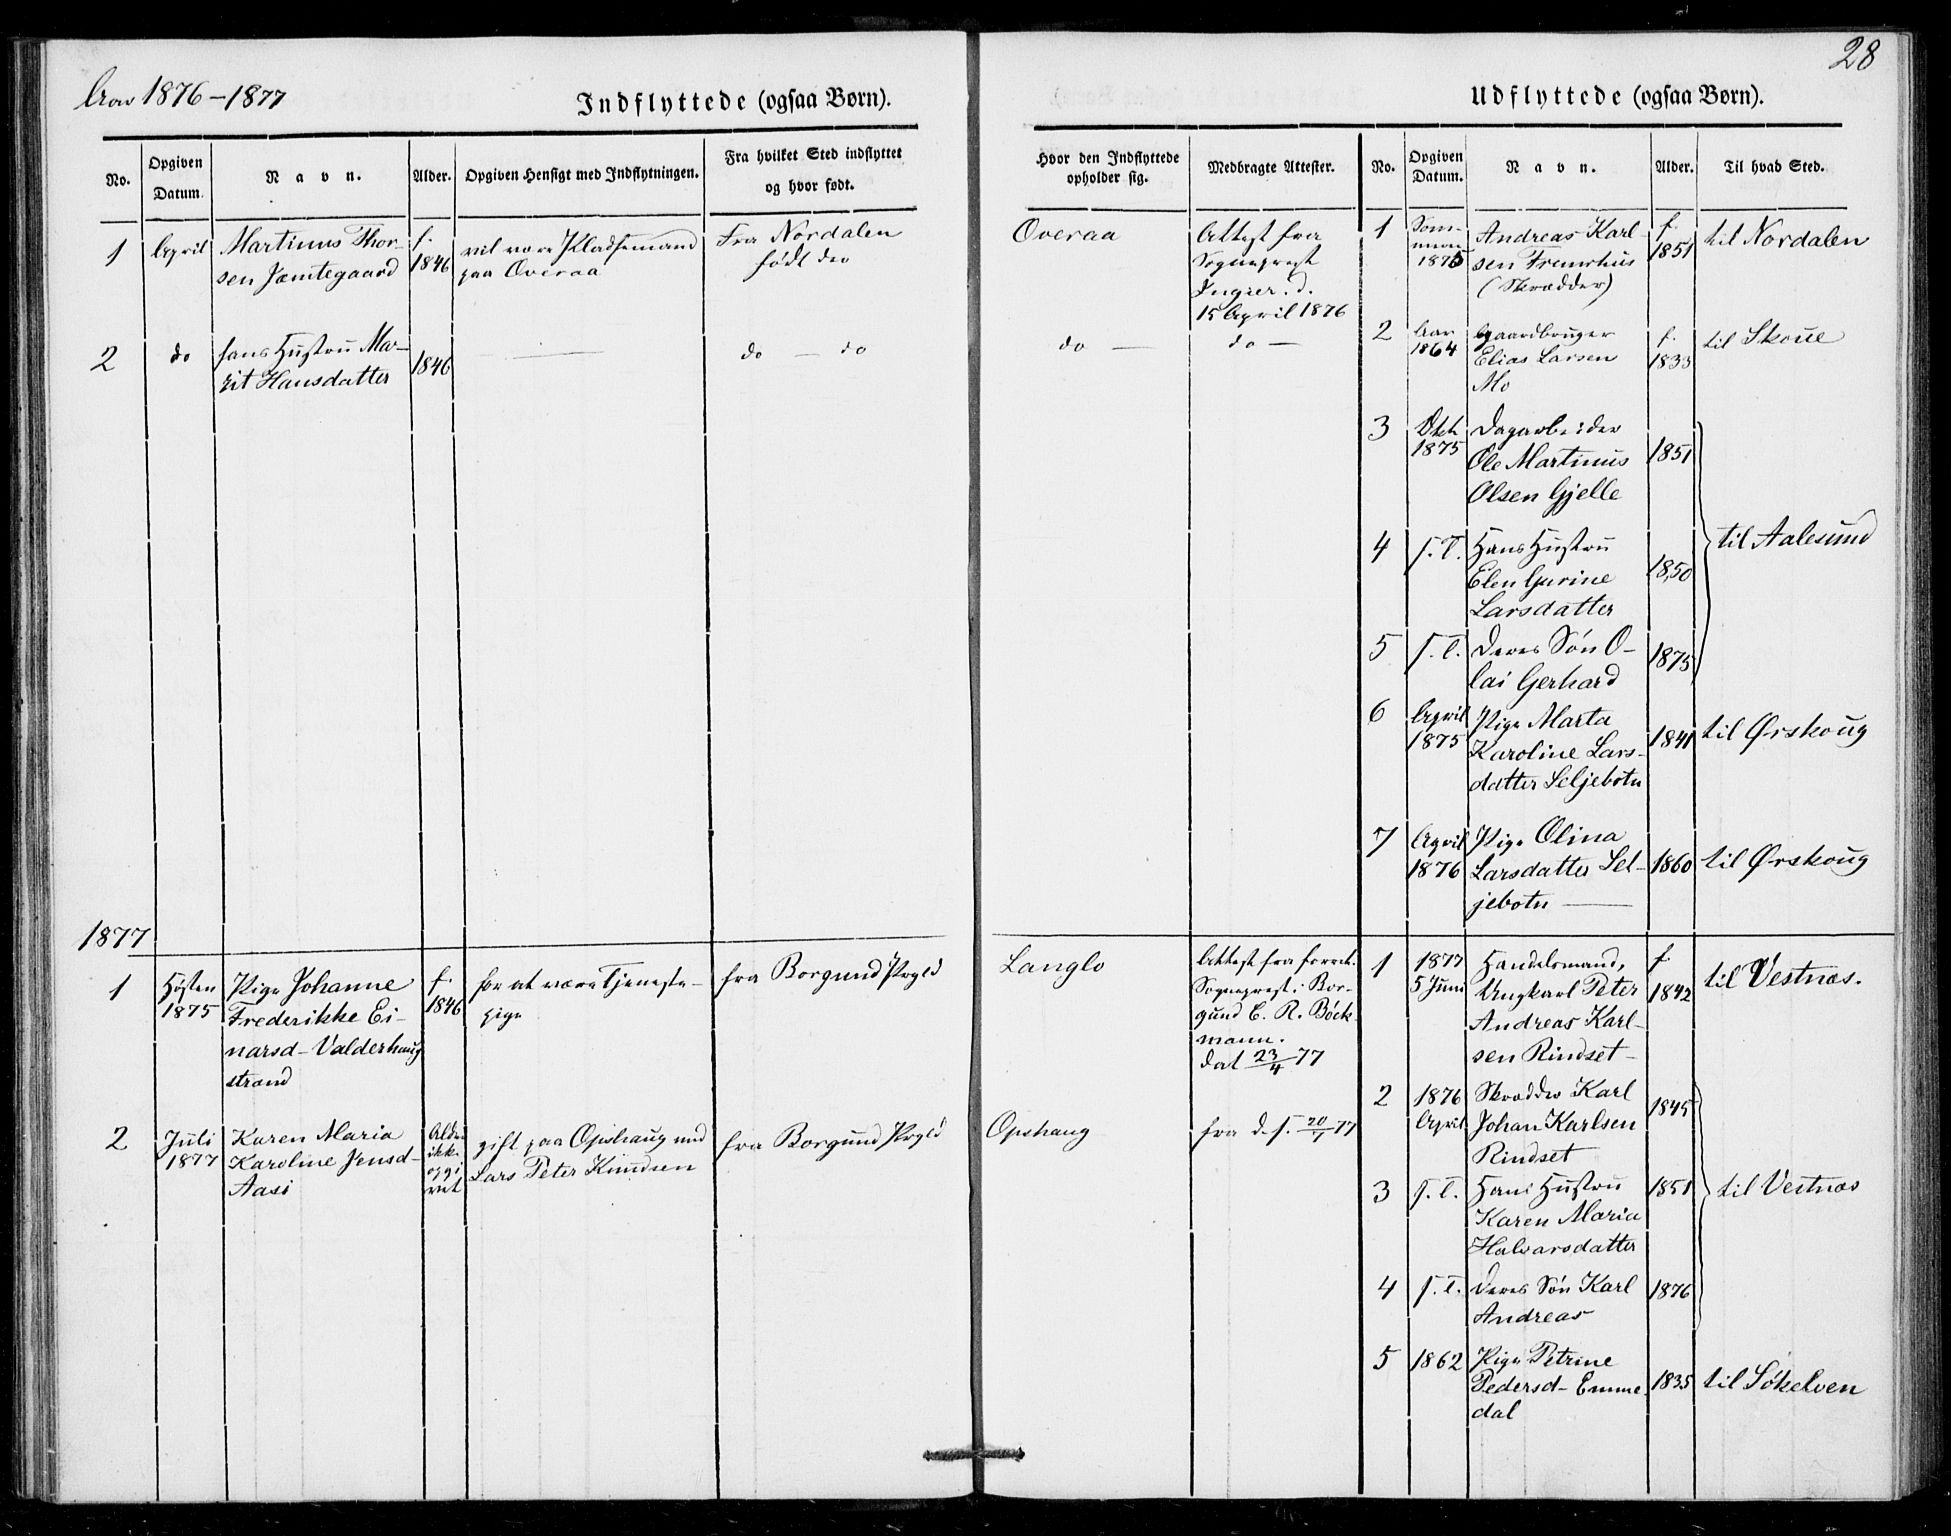 28
Aar 1876-1877
Indflyttede (ogsaa Børn).
Udflyttede (ogsaa Børn).
No.
Opgiven Datum.
Navn.
Alder.
Opgiven Hensigt med Indflytningen.
Fra hvilket Sted indflyttet
og hvor født.
Hvor den Indflyttede
opholder sig.
Medbragte Attester.
No.
Opgiven Datum.
Navn.
Alder.
Til hvad Sted.
1
April
Martinus Thor-
sen Jæmtegaard
f.
1846
vil være Pladsemand
paa Overaa
Fra Nordalen
født der
Overaa
Attest fra
Sogneprest
d.
15 April 1876
2
do
hans Hustru Mar-
rit Hansdatter
1846
do — do
do —
do —
1877
1
Høsten
1875
Pige Johanne
Frederikke Ei-
narsd- Valderhaug
strand
f.
1846
for at være Tjeneste-
pige
fra Borgund Prgld
Langlo
Attest fra forret.
Sogneprest i Bor-
gund C. R. Böck-
mann.
dat 23/4 77
2
Juli
1877
Karen Maria
Karoline Jensd-
Aasi
Alder
ikke
opgi
vet
gift paa Opshaug med
Lars Peter Knudsen
fra Borgund Prgld
Opshaug
fra d. s. 20/7 77
1
Som-
meren
1875
Andreas Karl-
sen
(Skrædder)
f.
1851
til Nordalen
2
Aar
1864
Gaardbruger
Elias Larsen
Mo
f.
1833
til Skoue
3
Okt.
1875
Dagarbeider
Ole Martinus
Olsen Gjelle
1851
4
s. T.
Hans Hustru
Elen Gurine
Larsdatter
1850
til Aalesund
5
s. T.
Deres Søn O-
lai Gerhard
1875
6
April
1875
Pige Marta
Karoline Lars-
datter Seljebotn
1841
til Ørskoug
7
April
1876
Pige Olina
Larsdatter Sel-
jebotn —
1860
til Ørskoug
1
1877
5 Juni
Handelsmand,
Ungkarl Peter
Andreas Karl-
sen Rindset-
f.
1842
til Vestnæs.
2
1876
April
Skrædder Karl
Johan Karlsen
Rindset
1845
3
s. T.
Hans Hustru
Karen Maria
Halvarsdatter
1851
til Vestnæs
4
s. T.
Deres Søn Karl
Andreas
1876
5
1862
Pige Petrine
Pedersd- Emme-
dal
1835
til Søkelven